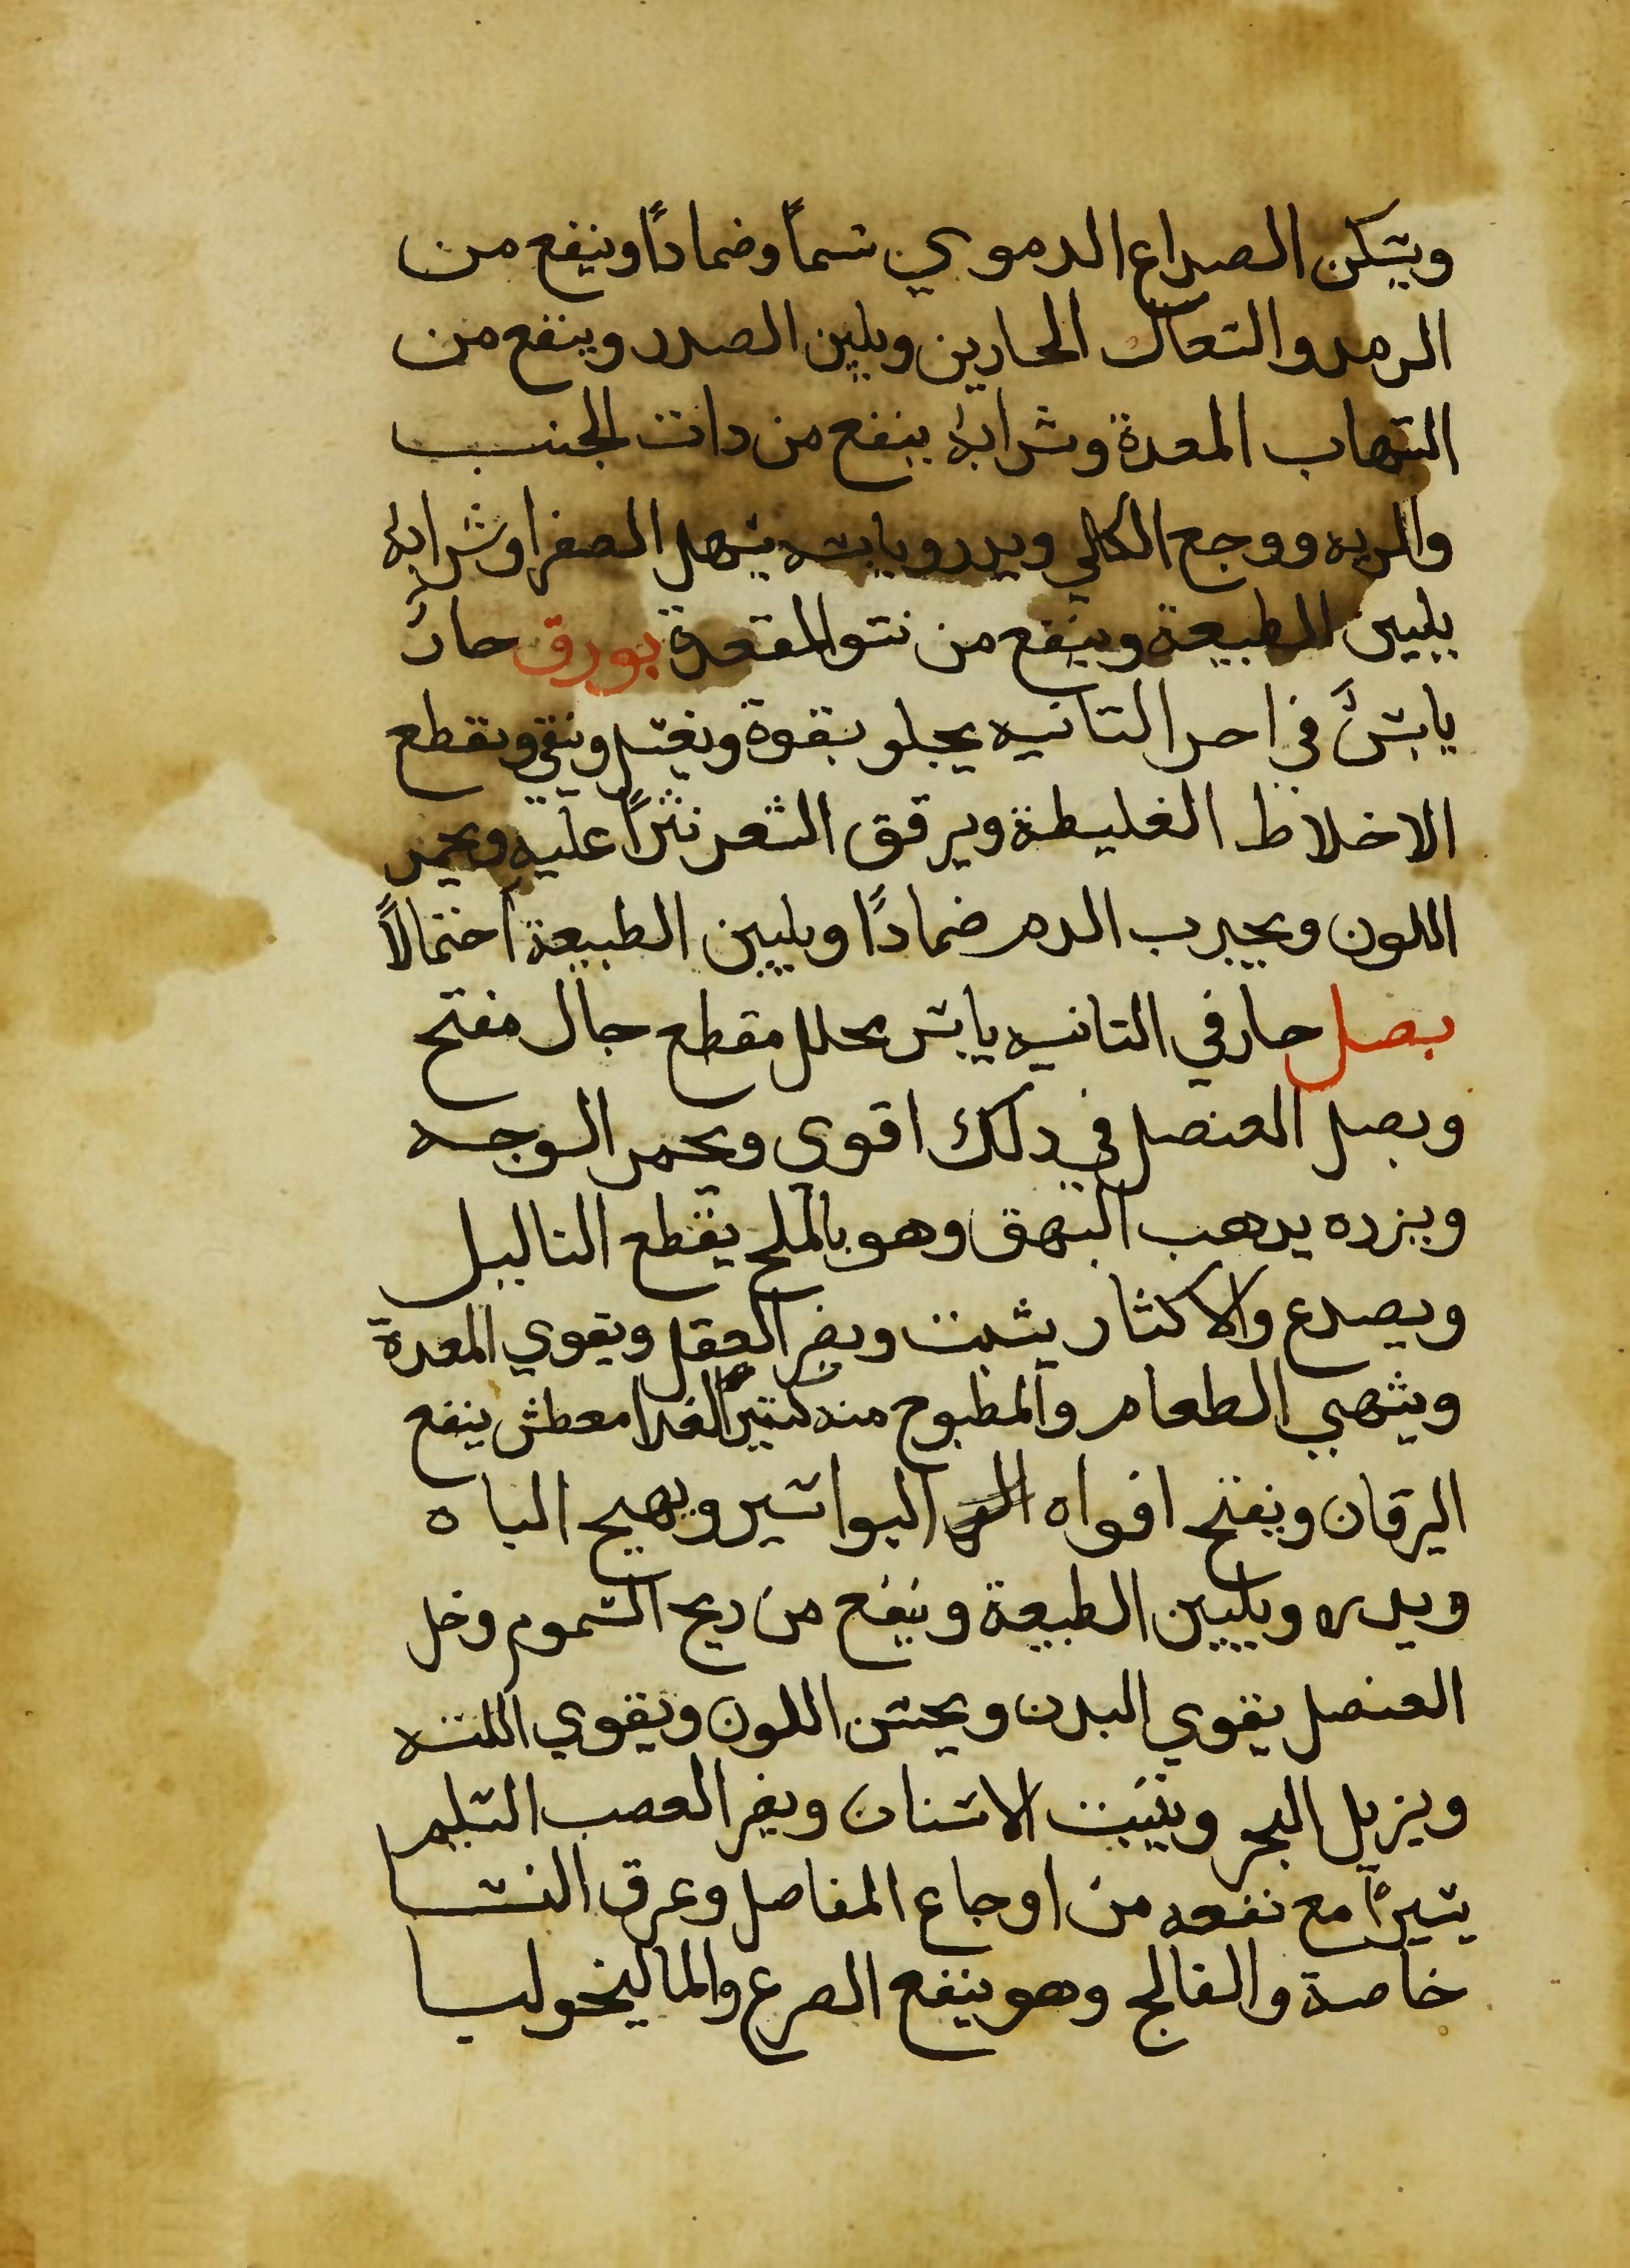 ويسكن الصداع الدموي شماً وضماداً وينفع من
الرمد والسعال الحارين ويلين الصدر وينفع من
التهاب المعدة وشرابه ينفع من دات الجنب
والريه ووجع الكلي ويدر ويابسه يسهل الصفرا وشرابه
يليين الطبيعة وينفع من نتو المقعدة بورق حارٌ
يابسٌ في احر التانيه يجلو بقوة ويغسل وينقي ويقطع
الاخلاط الغليظة ويرقق الشعر نثراً عليه ويحمر
اللون ويجدب الدم ضماداً ويليين الطبيعة احتمالاً
بصل حار في التانيه يابس محلل مقطع جال مفتح
وبصل العنصل في دلك اقوي ويحمر الوجه
وبزره يدهب البهق وهو بالملح يقطع التاليل
ويصدع والاكثار يسبت ويضر العقل ويقوي المعدة
ويشهي الطعام والمطبوخ منه كتير الغدا معطش ينفع
اليرقان ويفتح افواه البواسير ويهيج الباه
ويدر ويليين الطبيعة وينفع من ريح السموم وخل
العنصل يقوي البدن ويحسن اللون ويقوي اللته
ويزيل البخر ويتبت الاسنان ويضر العصب السليم
يسيراً مع نفعه من اوجاع المفاصل وعرق النسا
خاصة والفالج وهو ينفع الصرع والماليخوليا